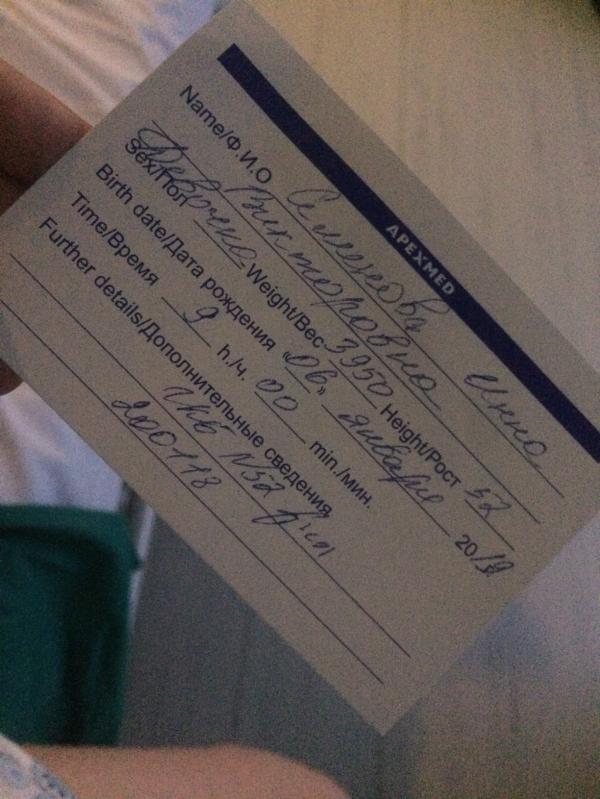 APEXMED
Name/Ф.И.О Семенова Инна
Викторовна
Sex/Пол Девочка Weight/Вес 3950 Height/Рост 52
Birth date/Дата рождения «06» января 20/19
Time/Время 9 h./ч. 00 min./мин.
Further details/Дополнительные сведения
ГКБ N52
200118